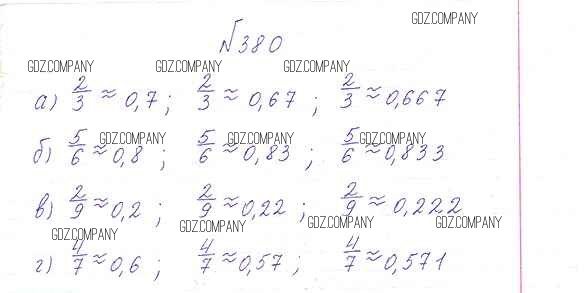 GDZ.COMPANY
№380
GDZ.COMPANY GDZ.COMPANY GDZ.COMPANY
а) 2/3 ≈ 0,7 ; 2/3 ≈ 0,67 ; 2/3 ≈ 0,667
GDZ.COMPANY GDZ.COMPANY GDZ.COMPANY
б) 5/6 ≈ 0,8 ; 5/6 ≈ 0,83 ; 5/6 ≈ 0,833
в) 2/9 ≈ 0,2 ; 2/9 ≈ 0,22 ; 2/9 ≈ 0,222
GDZ.COMPANY GDZ.COMPANY GDZ.COMPANY GDZ.COMPANY
г) 4/7 ≈ 0,6 ; 4/7 ≈ 0,57 ; 4/7 ≈ 0,571